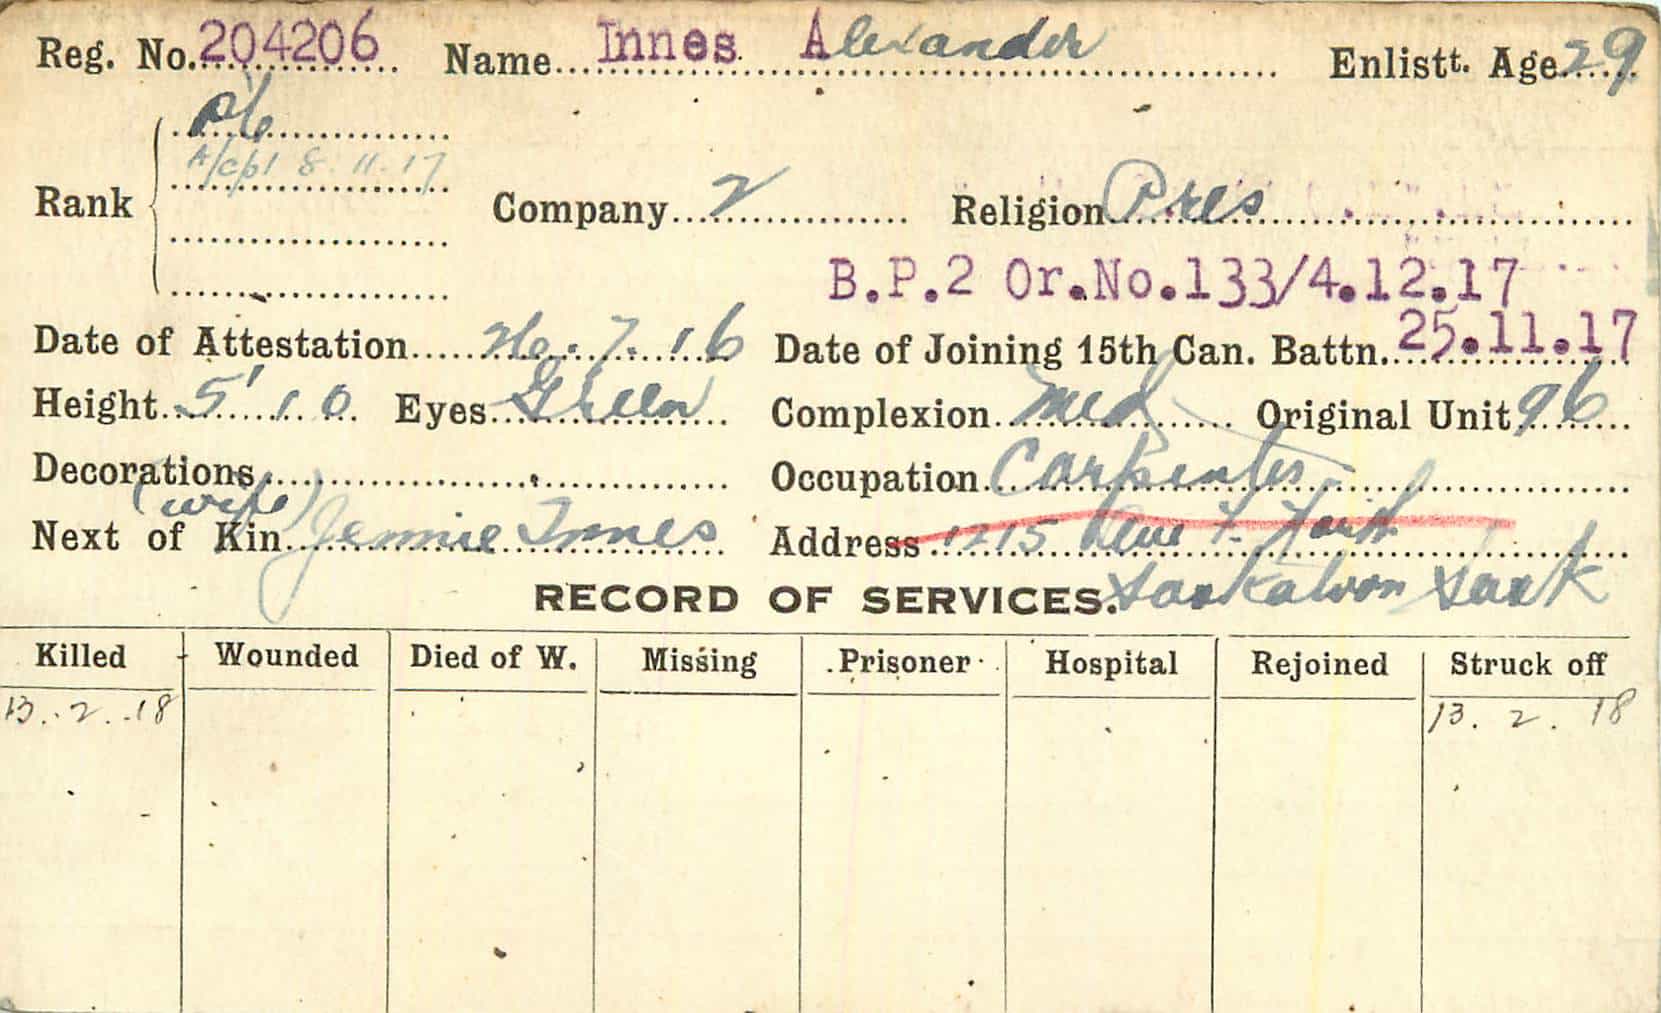 Reg. No. 204206 Name Innes Alexander Enlistt. Age 29
Pte
A/Cpl 8.11.17
Rank Company 2 Religion Pres
B.P.2 Or.No.133/4.12.17
Date of Attestation 26.7.16 Date of Joining 15th Can. Battn. 25.11.17
Height 5'10 Eyes Complexion Med Original Unit 96
Decorations Occupation Carpenter
(wife)
Next of Kin Jennie Innes Address 1215 Ave F. North
Saskatoon Sask
RECORD OF SERVICES.
Killed Wounded Died of W. Missing Prisoner Hospital Rejoined Struck off
13.2.18 13.2.18